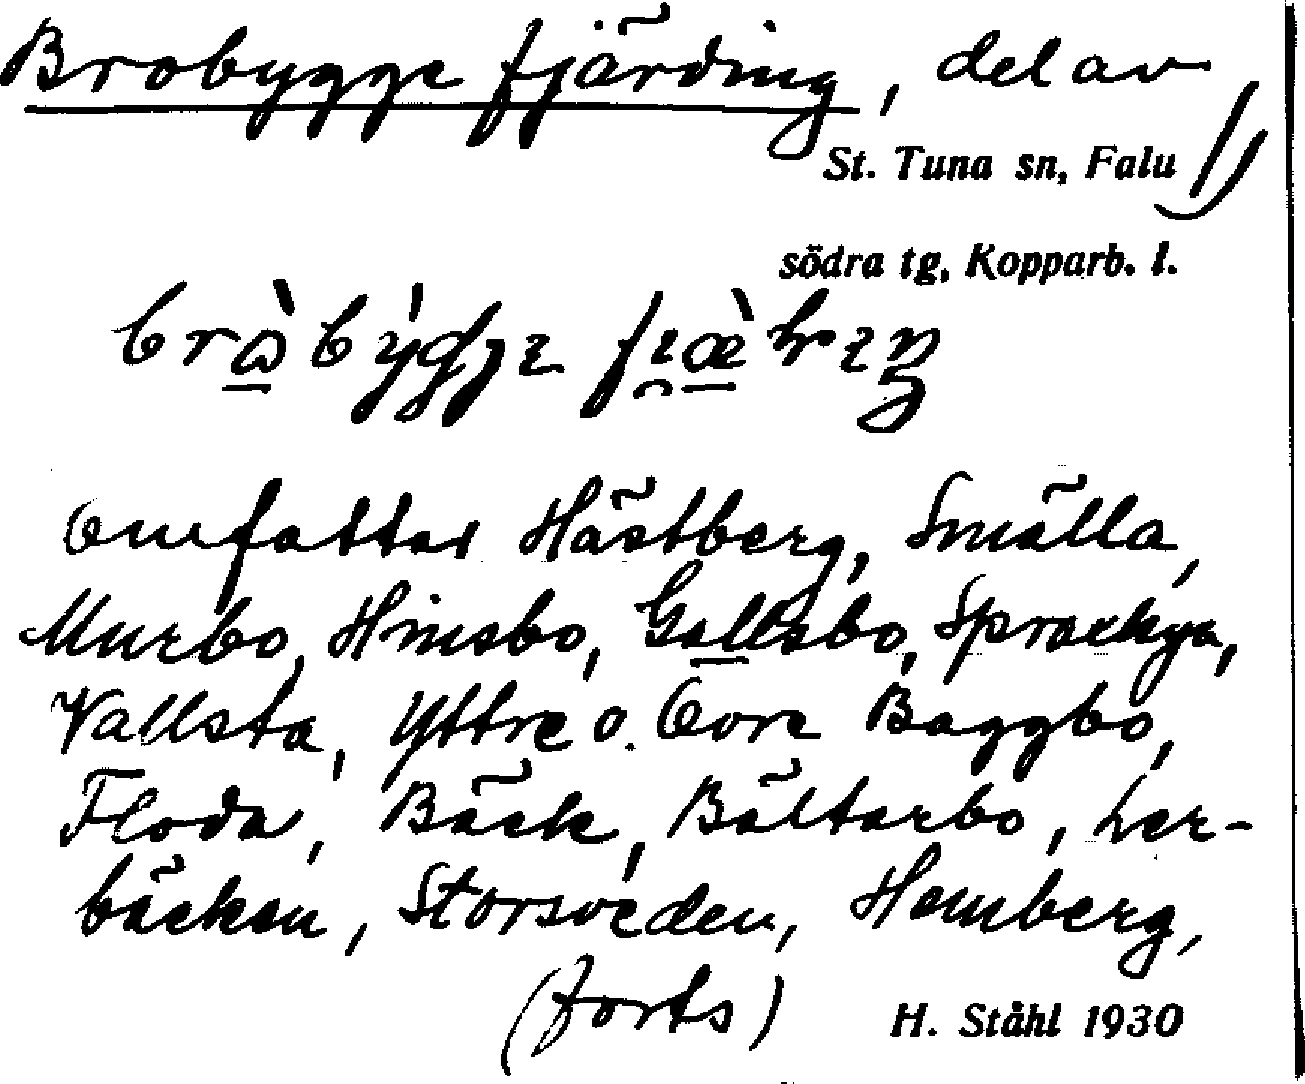 Brobygge fjärding, del av
St. Tuna sn, Falu
södra tg, Kopparb. l.
Omfattar Hästberg, Smälla,
Murbo, Hinsbo, Gallsbo, Sprackya,
Vallsta, Yttre o. Övre Baggbo,
Floda, Bäck, Bältarbo, Ler-
bäcken, Storsveden, Homberg,
(forts)
H. Ståhl 1930